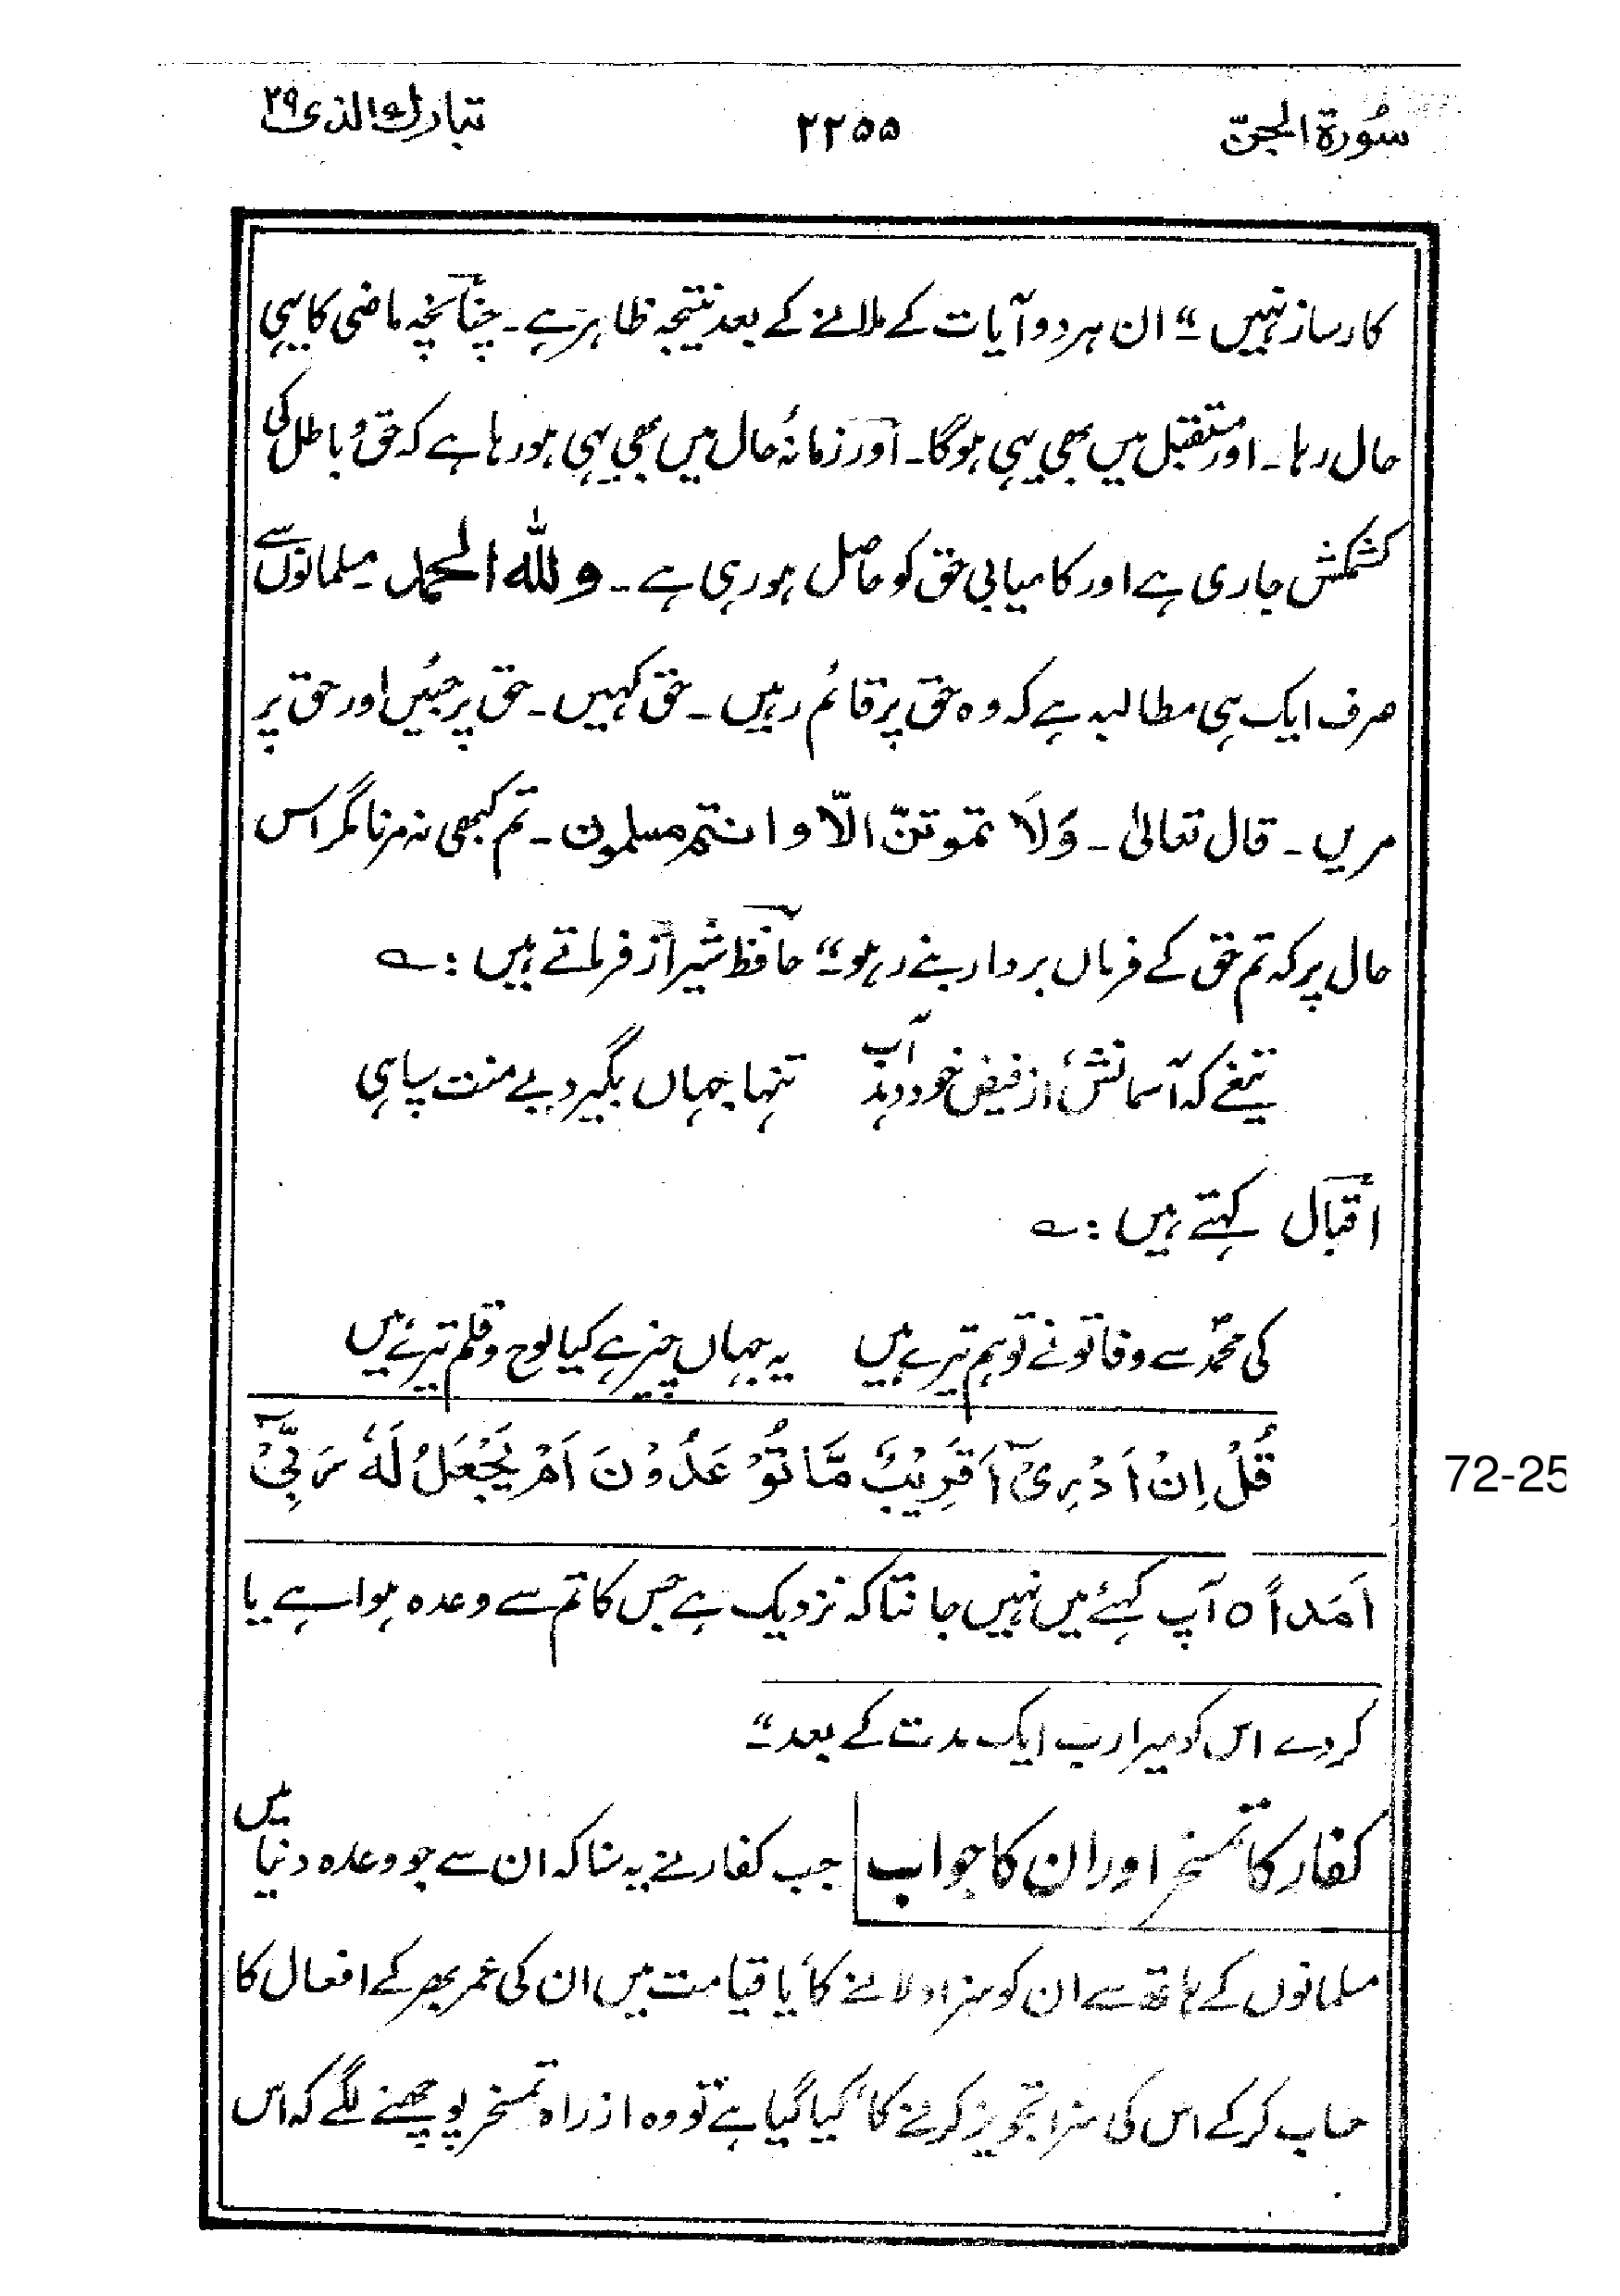 سُورۃ الجنّ ۲۲۵۵ تبارك الذی ۲۹
کارساز نہیں ۔“ ان ہر دو آیات کے ملانے کے بعد نتیجہ ظاہر ہے۔ چنانچہ ماضی کا یہی
حال رہا۔ اور مستقبل میں بھی یہی ہوگا۔ اور زمانۂ حال میں بھی یہی ہو رہا ہے کہ حق و باطل کی
کشمکش جاری ہے اور کامیابی حق کو حاصل ہو رہی ہے۔ وللہ الحمد مسلمانوں سے
صرف ایک ہی مطالبہ ہے کہ وہ حق پر قائم رہیں۔ حق کہیں۔ حق پر جئیں اور حق پر
مریں۔ قال تعالیٰ۔ وَلَا تموتنّ الّا و انتم مسلمون۔ تم کبھی نہ مرنا مگر اس
حال پر کہ تم حق کے فرماں بردار بنے رہو ۔“ حافظ شیراز فرماتے ہیں :؎
تیغے کہ آسمانش از فیض خود دہد آب تنہا جہاں بگیرد بے منت سپاہی
اقبال کہتے ہیں :؎
کی محمدؐ سے وفا تو نے تو ہم تیرے ہیں یہ جہاں چیز ہے کیا لوح و قلم تیرے ہیں
قُلْ اِنْ اَدْرِیْٓ اَقَرِیْبٌ مَّا تُوْعَدُوْنَ اَمْ یَجْعَلُ لَهٗ رَبِّیْٓ
72-25
اَمَداً ٥ آپ کہئے میں نہیں جانتا کہ نزدیک ہے جس کا تم سے وعدہ ہوا ہے یا
کر دے اس کو میرا رب ایک مدت کے بعد ۔“
کفار کا تمسخر اور ان کا جواب جب کفار نے یہ سنا کہ ان سے جو وعدہ دنیا میں
مسلمانوں کے ہاتھ سے ان کو سزا دلانے کا یا قیامت میں ان کی عمر بھر کے افعال کا
حساب کر کے اس کی سزا تجویز کرنے کا کیا گیا ہے تو وہ از راہ تمسخر پوچھنے لگے کہ اس